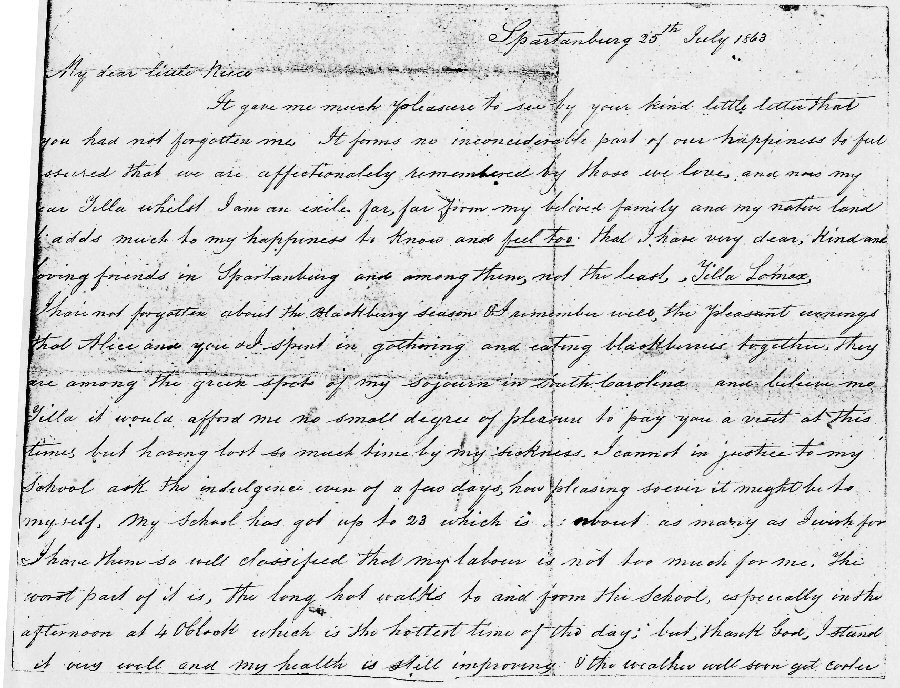 Spartanburg 25th July 1863
My dear little Niece
It gave me much pleasure to see by your kind little letter that
you had not forgotten me. It forms no inconsiderable part of our happiness to feel
ssured that we are affectionately remembered by those we love, and now my
ear Tilla whilst I am an exile far, far from my beloved family and my native land
adds much to my happiness to know and feel too that I have very dear, kind and
loving friends in Spartanburg and among them, not the least, Tilla Lomax,
I have not forgotten about the Blackbury season & I remember well, the pleasant evenings
that Alice and you & I spent in gathering and eating blackburries together, they
are among the green spots of my sojourn in South Carolina and believe me
Tilla it would afford me no small degree of pleasure to pay you a visit at this
time, but having lost so much time by my sickness. I cannot in justice to my
School ask the indulgence even of a few days, how pleasing soever it might be to
myself. My School has got up to 23 which is about as many as I wish for
I have them so well classified that my labour is not too much for me. The
worst part of it is, the long hot walks to and from the School, especially in the
afternoon at 4 Oclock which is the hottest time of the day; but, thank God, I stand
it very well and my health is still improving & the weather will soon get cooler